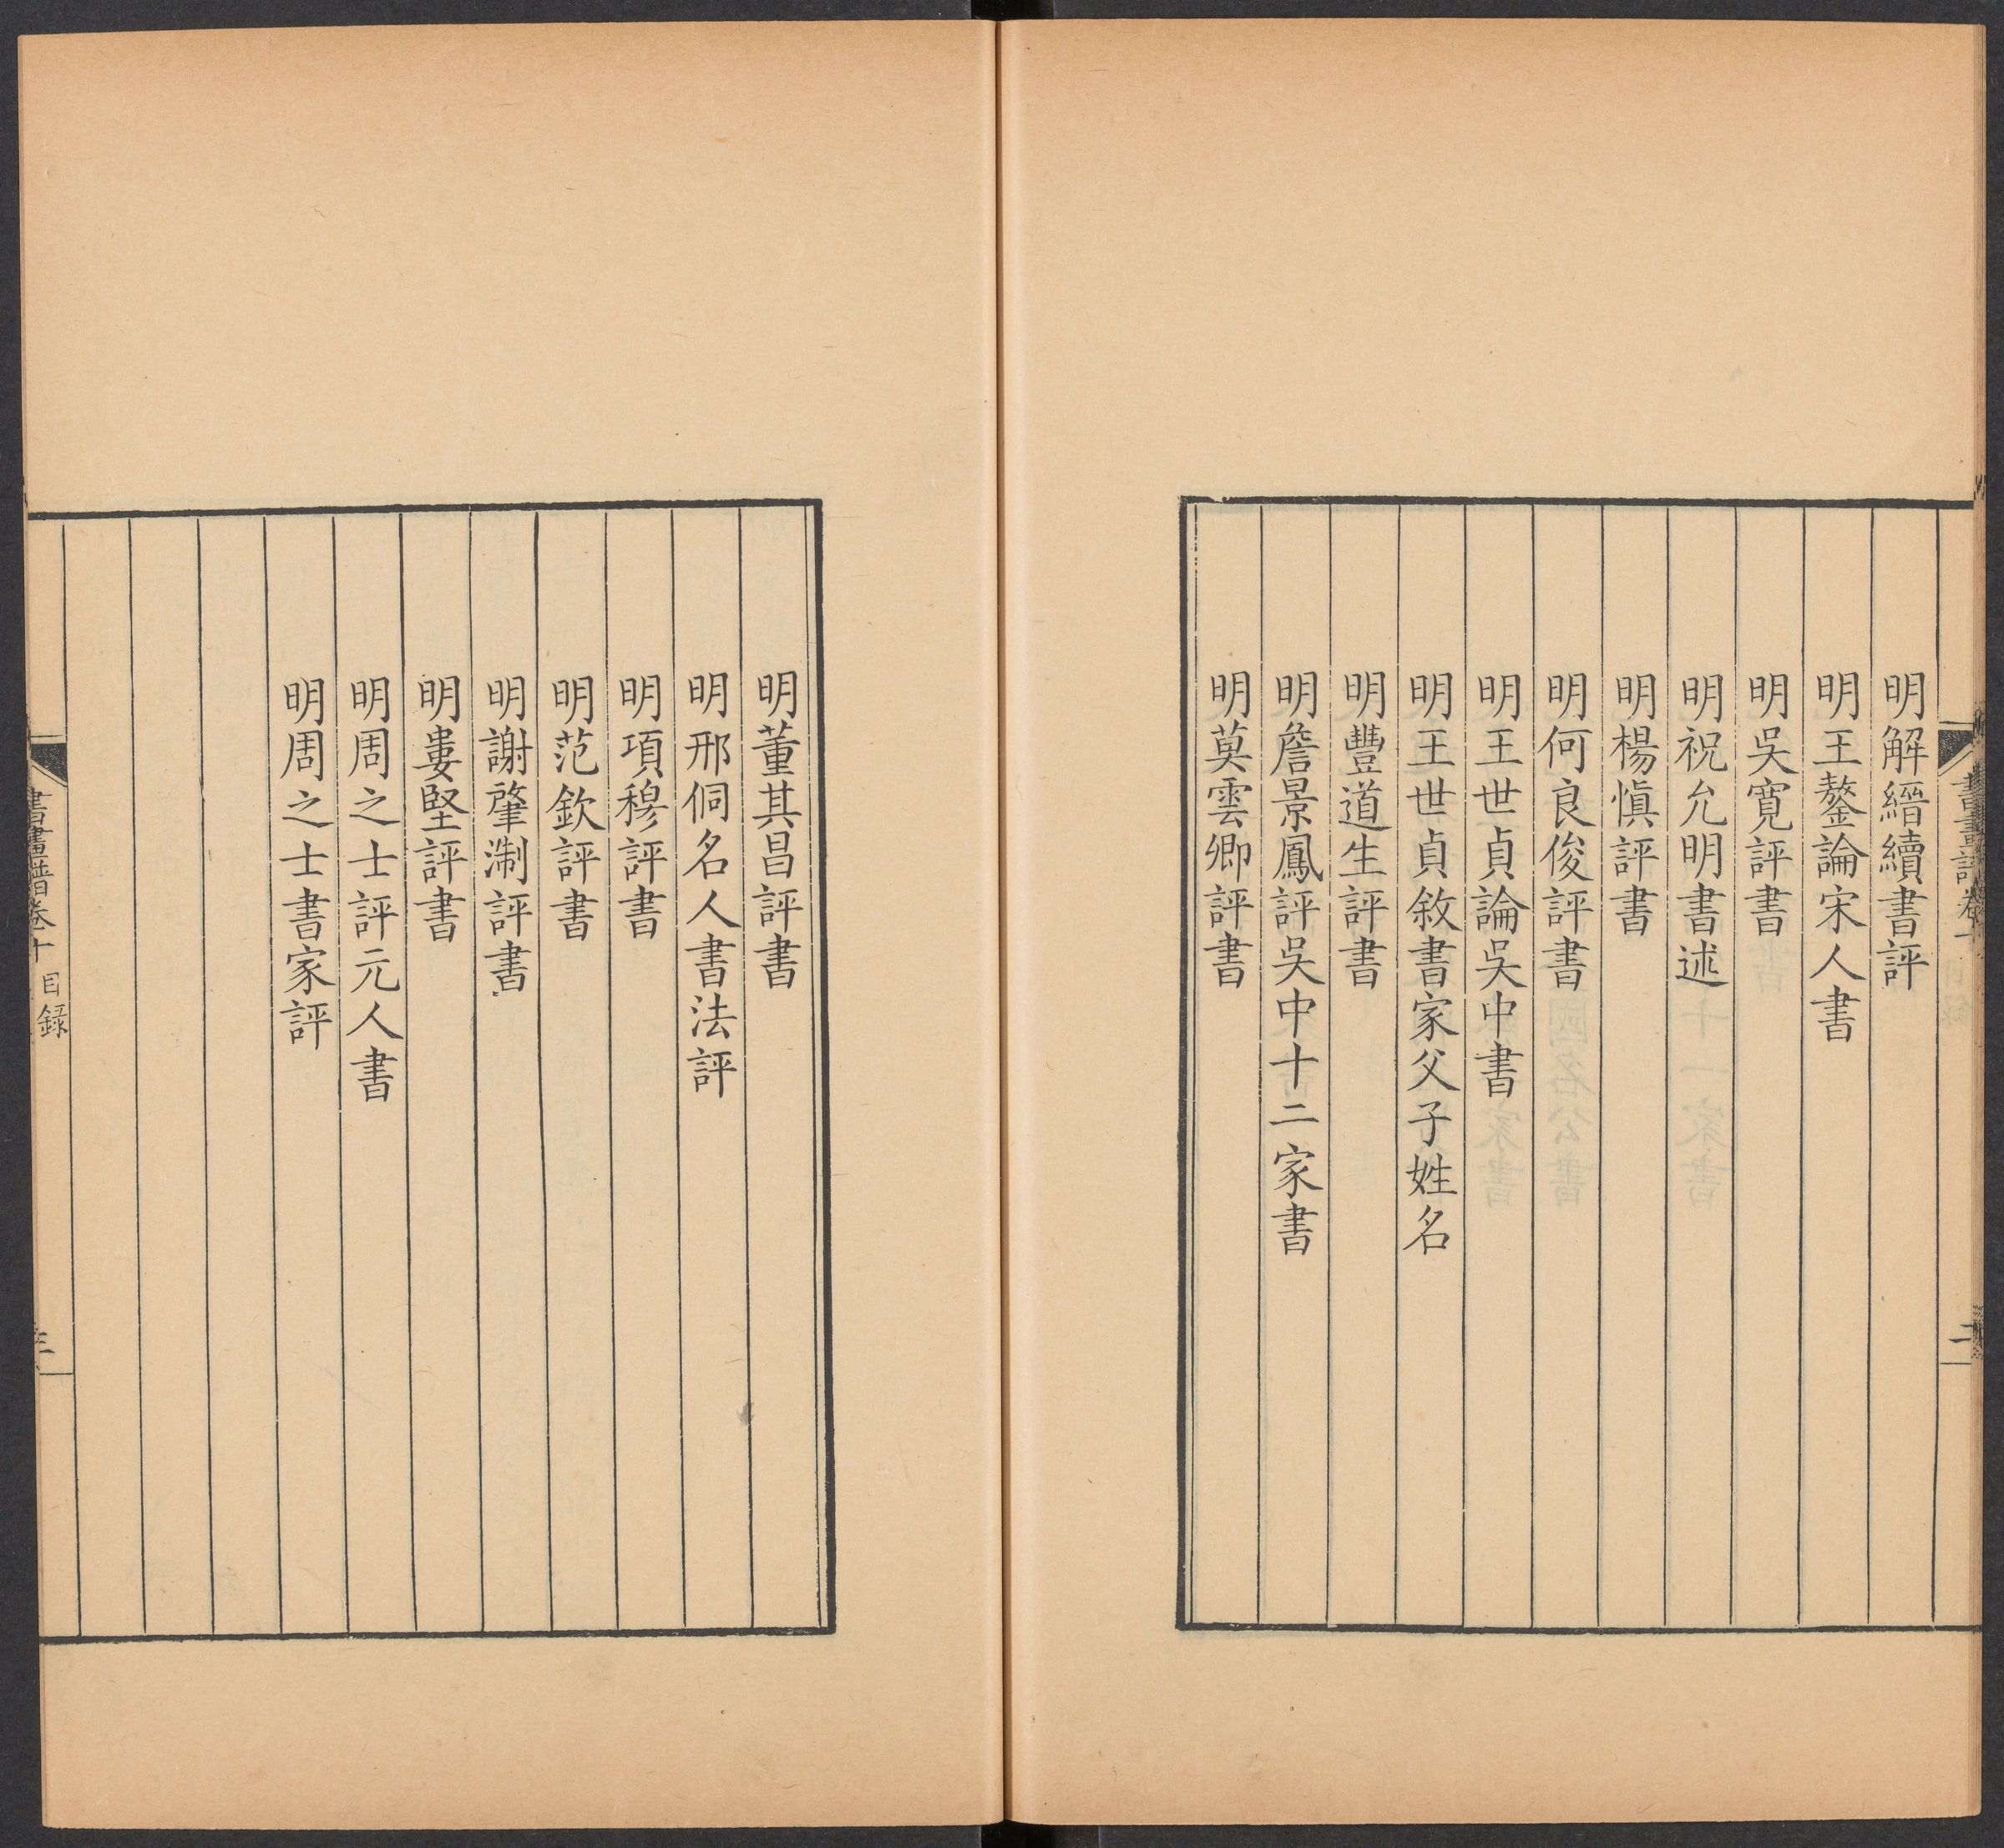 書畫譜卷十
目錄
二
明解縉續書評
明王鏊論宋人書
明吳寬評書
明祝允明書述
明楊慎評書
明何良俊評書
明王世貞論吳中書
明王世貞敘書家父子姓名
明豐道生評書
明詹景鳳評吳中十二家書
明莫雲卿評書
明董其昌評書
明邢侗名人書法評
明項穆評書
明范欽評書
明謝肇淛評書
明婁堅評書
明周之士評元人書
明周之士書家評
書畫譜卷十
目錄
三